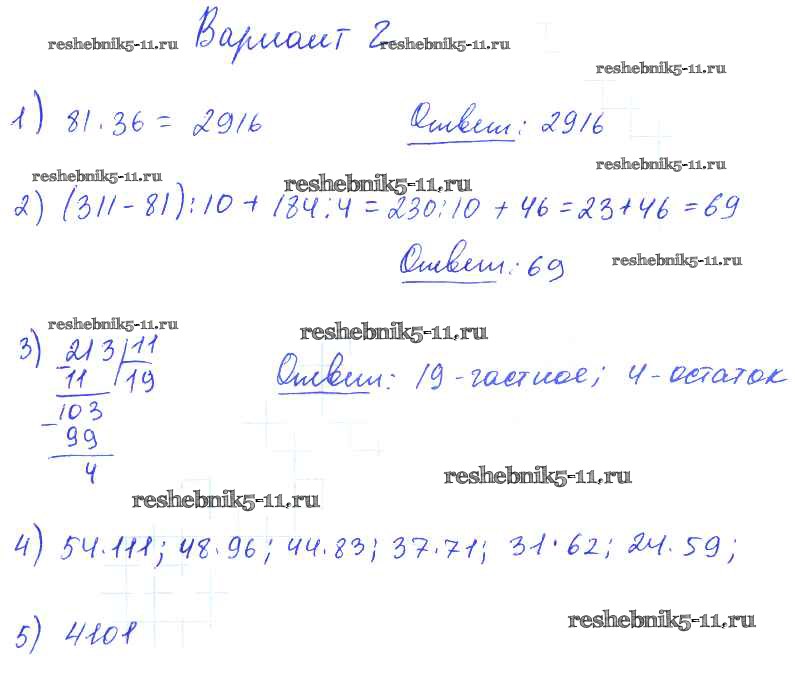 Вариант 2
reshebnik5-11.ru reshebnik5-11.ru
reshebnik5-11.ru
1) 81·36 = 2916 Ответ: 2916
reshebnik5-11.ru
reshebnik5-11.ru reshebnik5-11.ru
2) (311-81):10 + 184:4 = 230:10 + 46 = 23+46 = 69
Ответ: 69 reshebnik5-11.ru
reshebnik5-11.ru reshebnik5-11.ru
3) 213 | 11
11 | 19
103
- 99
4
Ответ: 19 - частное; 4 - остаток
reshebnik5-11.ru
reshebnik5-11.ru
4) 54·111; 48·96; 44·83; 37·71; 31·62; 24·59;
5) 4101
reshebnik5-11.ru